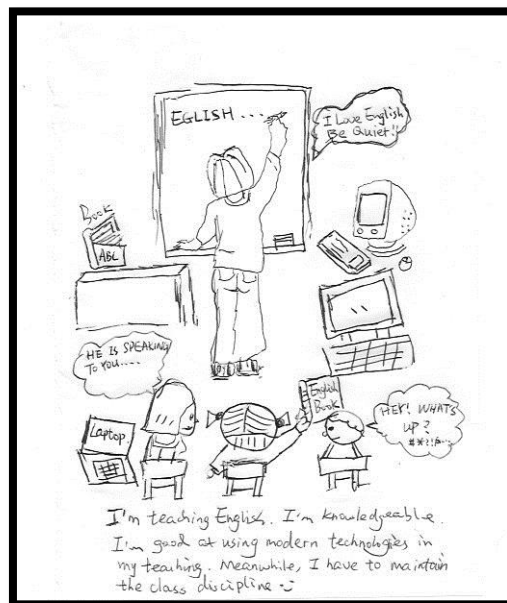 EGLISH...
I Love English
Be Quiet!!
Book
ABC
HE IS SPEAKING
TO YOU....
Laptop
English
Book
HEY! WHATS
UP?
#*?!/*...
I'm teaching English. I'm knowledgeable.
I'm good at using modern technologies in
my teaching. Meanwhile, I have to maintain
the class discipline